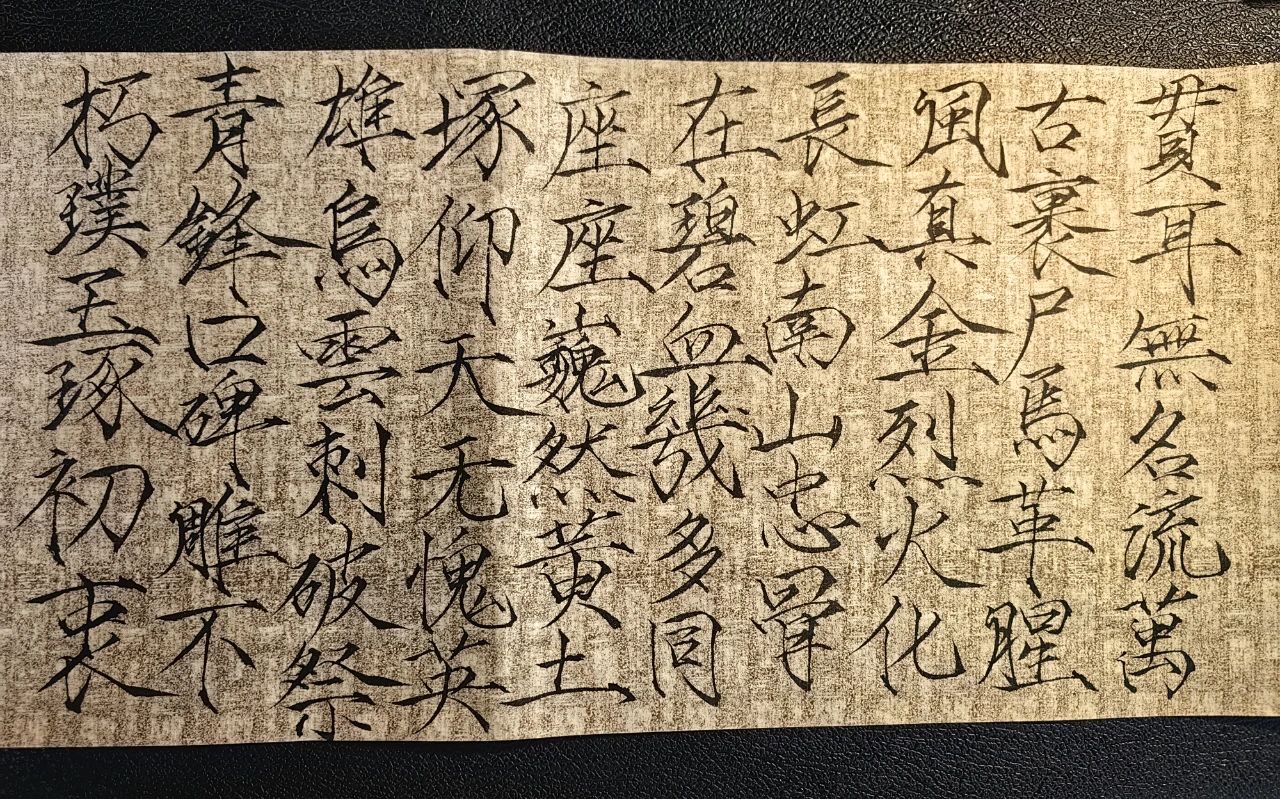 貫耳無名流萬
古裹尸馬革腥
風真金烈火化
長虹南山忠骨
在碧血幾多同
座座巍然黃土
塚仰天无愧英
雄烏雲刺破祭
青鋒口碑雕不
朽璞玉琢初衷